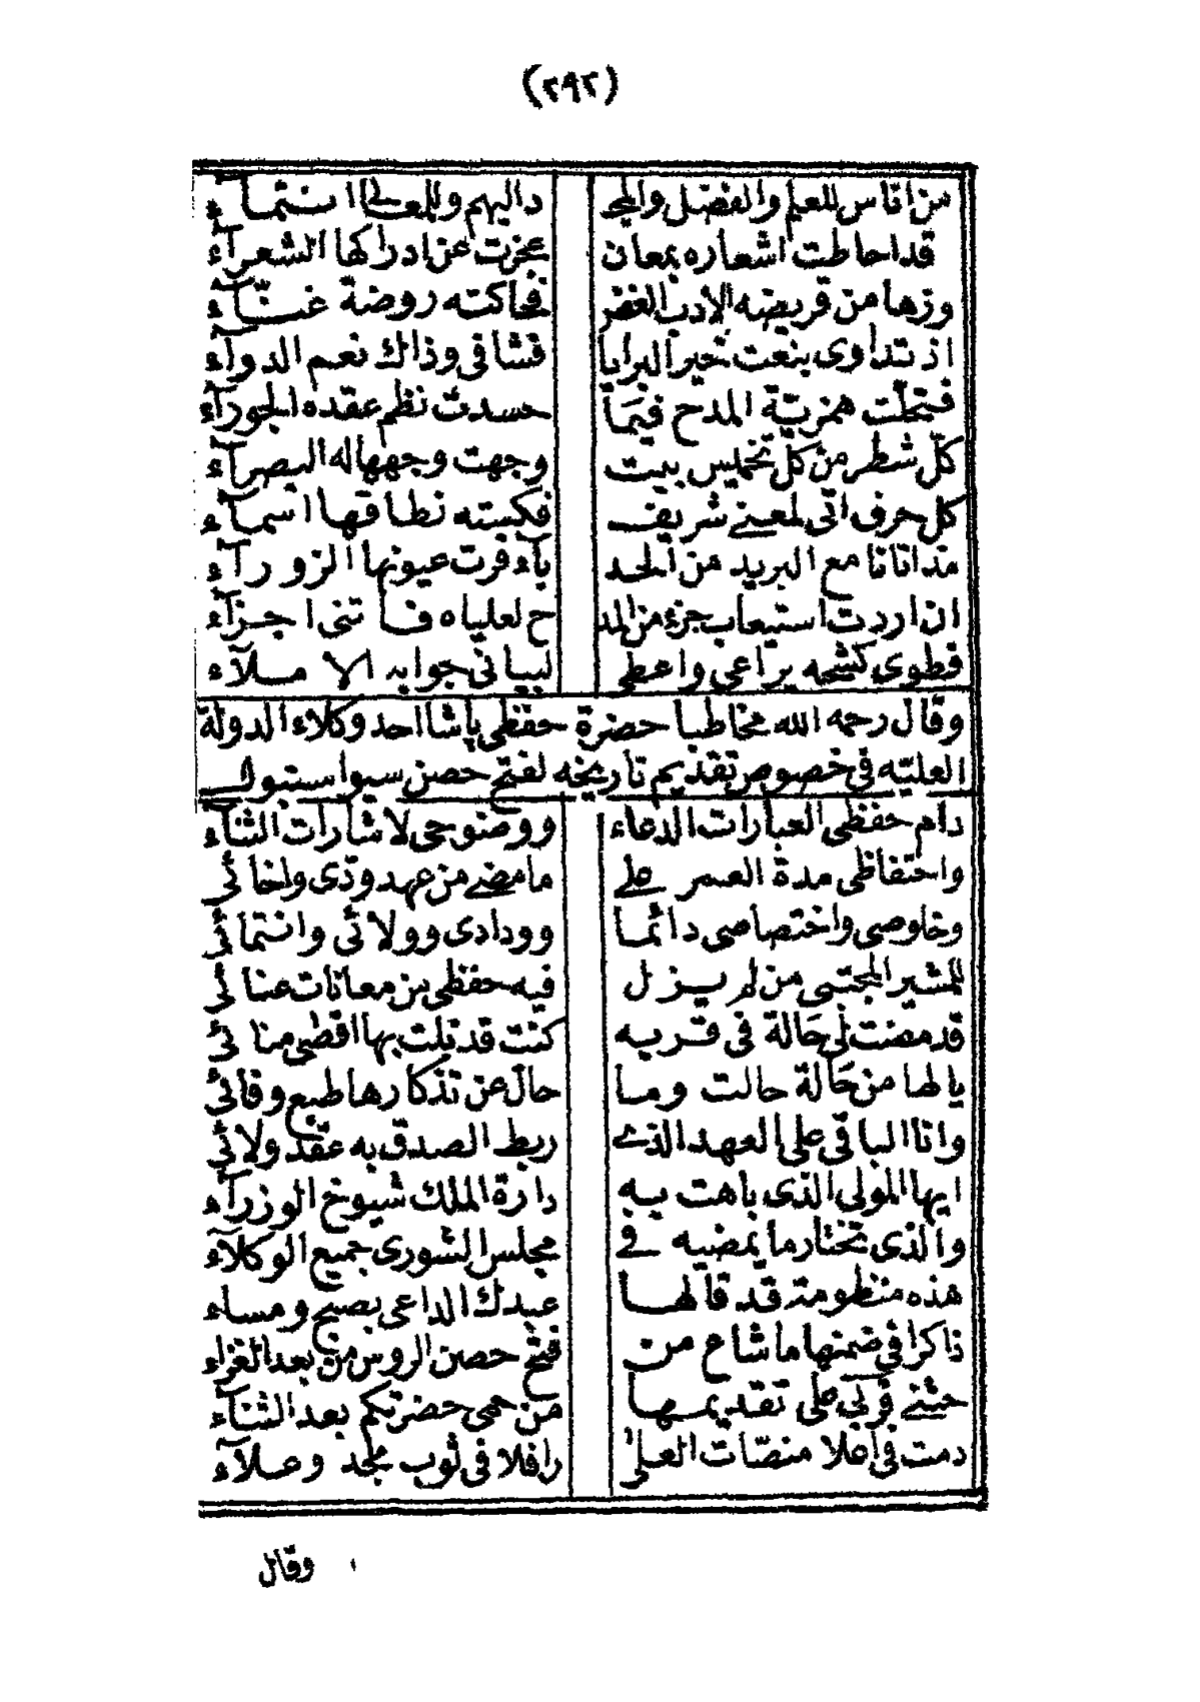 (٢٩٢)
من اناس للعلم والفضل والمجـ داليهم وللمعالى انتمآء
قد احاطت اشعاره بمعان عجزت عن ادراكها الشعرآء
وزها من قريضه الأدب الغض فحاكته روضة غنّآء
اذ تداوى بنعت خير البرايا فشافى وذاك نعم الدوآء
فتحلّت همزيّة المدح فيمَا حسدت نظم عقده الجوزآء
كلّ شطر من كلّ تخميس بيت وجهت وجهها له البصرآء
كل حرف اتى لمعنى شريف فكسته نطاقها اسمآء
مذ اتانا مع البريد من الحد بآء قرت عيونها الزورآء
ان اردت استيعاب جزء من المد ح لعلياه فاتنى اجزآء
فطوى كشحه يراعى واعطى لبيانى جوابه الاملآء
وقال رحمه الله مخاطبا حضرة حفظى پاشا احد وكلاء الدولة
العليّه فى خصوص تقديم تاريخه لفتح حصن سيواستبول
دام حفظى العبارات الدعاء ووضوحى لاشارات الثنآء
واحتفاظى مدة العمر على ما مضى من عهد ودّى واخائى
وخلوصى واختصاصى دائما وودادى وولائى وانتمائى
للمشير المجتبى من لم يزل فيه حفظى من معانات عنائى
قد مضت لى حَالة فى قربه كنت قد نلت بها اقصى منائى
يالها من حَالة حالت وما حال عن تذكارها طبع وفائى
وانا الباقى على العهد الذى ربط الصدق به عقد ولائى
ايها المولى الذى باهت به دارة الملك شيوخ الوزرآء
والذى تختار ما يمضيه فى مجلس الشورى جميع الوكلآء
هذه منظومة قد قالها عبدك الداعى بصبح ومساء
ذاكرا فى ضمنها ما شاع من فتح حصن الروس من بعد الغزاء
حثنى قربى على تقديمها من حمى حضرتكم بعد الثنآء
دمت فى اعلا منصّات العلى رافلا فى ثوب مجد وعلآء
وقال